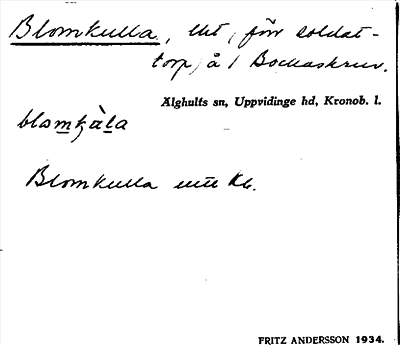 Blomkulla, lht, förr soldat-
torp, å 1 Bockaskruv.
Älghults sn, Uppvidinge hd, Kronob. l.
Blomkulla
FRITZ ANDERSSON 1934.